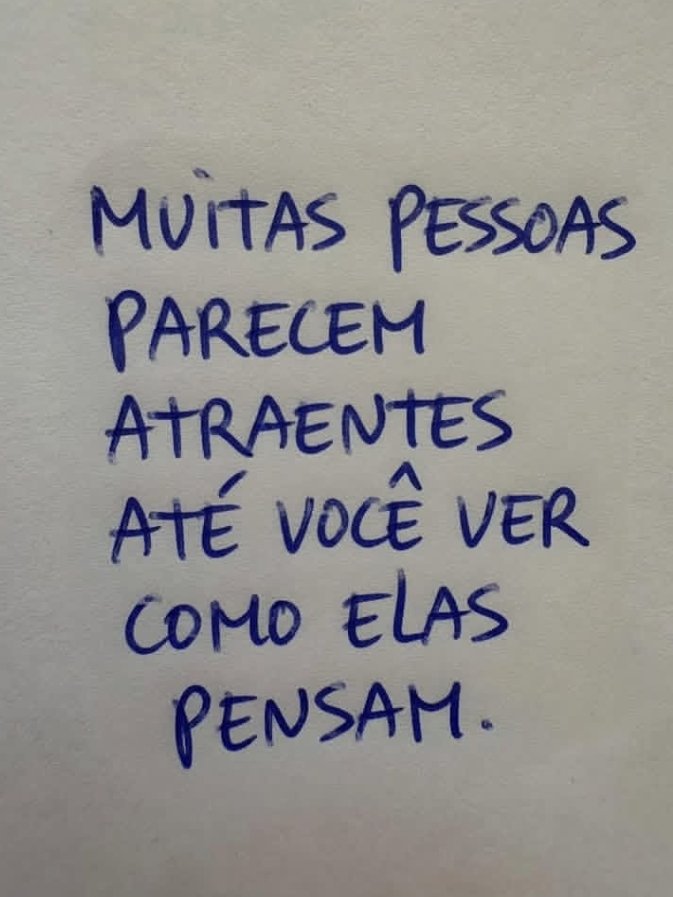 MUITAS PESSOAS
PARECEM
ATRAENTES
ATÉ VOCÊ VER
COMO ELAS
PENSAM.